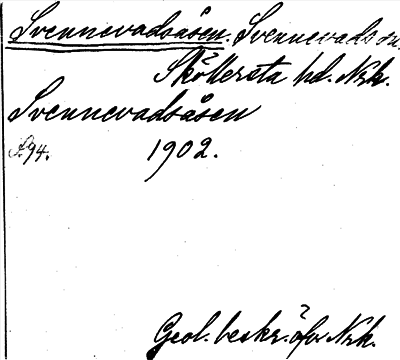 Svennevadsåsen. Svennevads sn.
Sköllersta hd. Nrk.
Svennevadsåsen
S. 94. 1902.
Geol. beskr. öfv. Nrk.